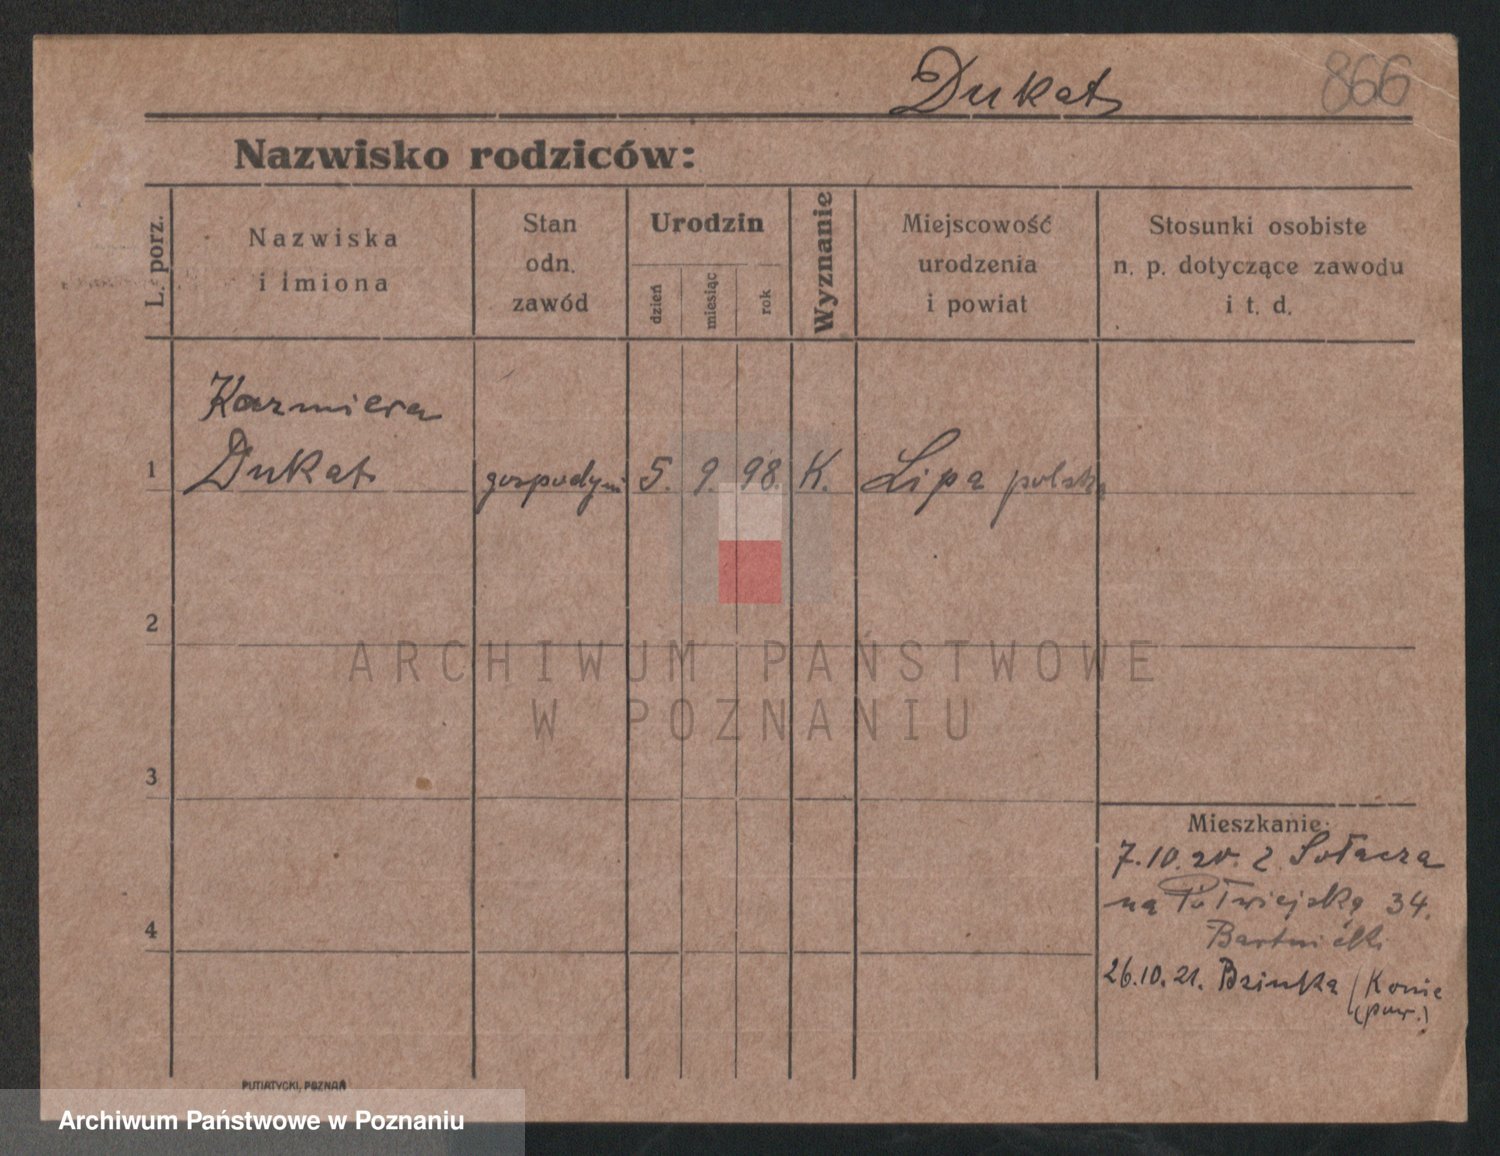 Dukat
866
Nazwisko rodziców:
L. porz.
Nazwiska
i imiona
Stan
odn.
zawód
Urodzin
dzień
miesiąc
rok
Wyznanie
Miejscowość
urodzenia
i powiat
Stosunki osobiste
n. p. dotyczące zawodu
i t. d.
Kazmiera
1 Dukat gospodyni 5. 9. 98. K. Lipa polska
2
ARCHIWUM PAŃSTWOWE
W POZNANIU
3
Mieszkanie:
7.10.20. z Sołacza
na Półwiejską 34.
4
26.10.21.
(pow.)
PUTIATYCKI, POZNAŃ
Archiwum Państwowe w Poznaniu